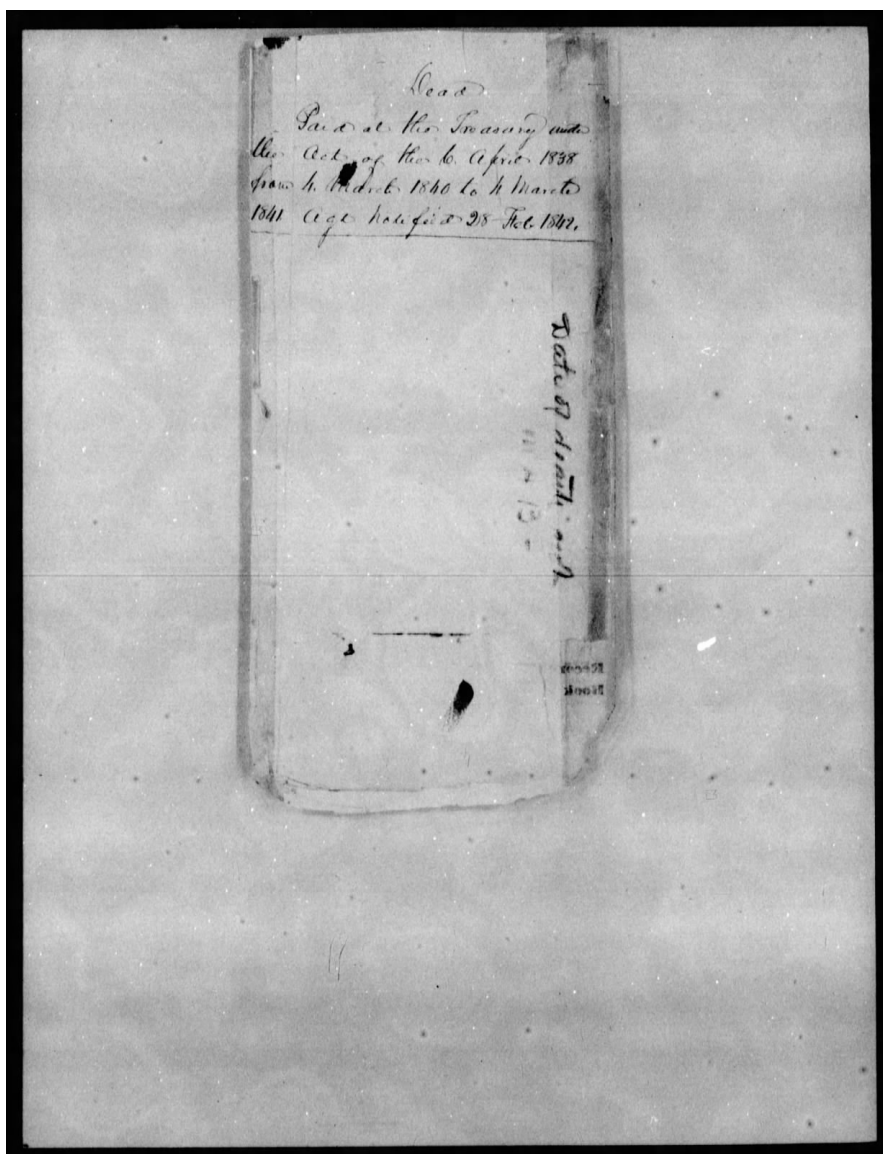 Dead
Paid at the Treasury under
the Act of the 6. April 1838
from 4. March 1840 to 4 March
1841 Agt Notified 28 Feb 1842.
Date of death and